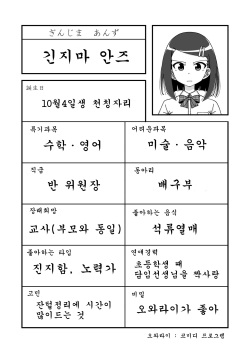 ぎんじま あんず
긴지마 안즈
誕生日
10월4일생 천칭자리
특기과목
수학·영어
어려운과목
미술·음악
직급
반 위원장
동아리
배구부
장래희망
교사(부모와 동일)
좋아하는 음식
석류열매
좋아하는 타입
진지함, 노력가
연애경력
초등학생 때
담임선생님을 짝사랑
고민
잔털정리에 시간이
많이드는 것
비밀
오와라이가 좋아
오와라이 : 코미디 프로그램